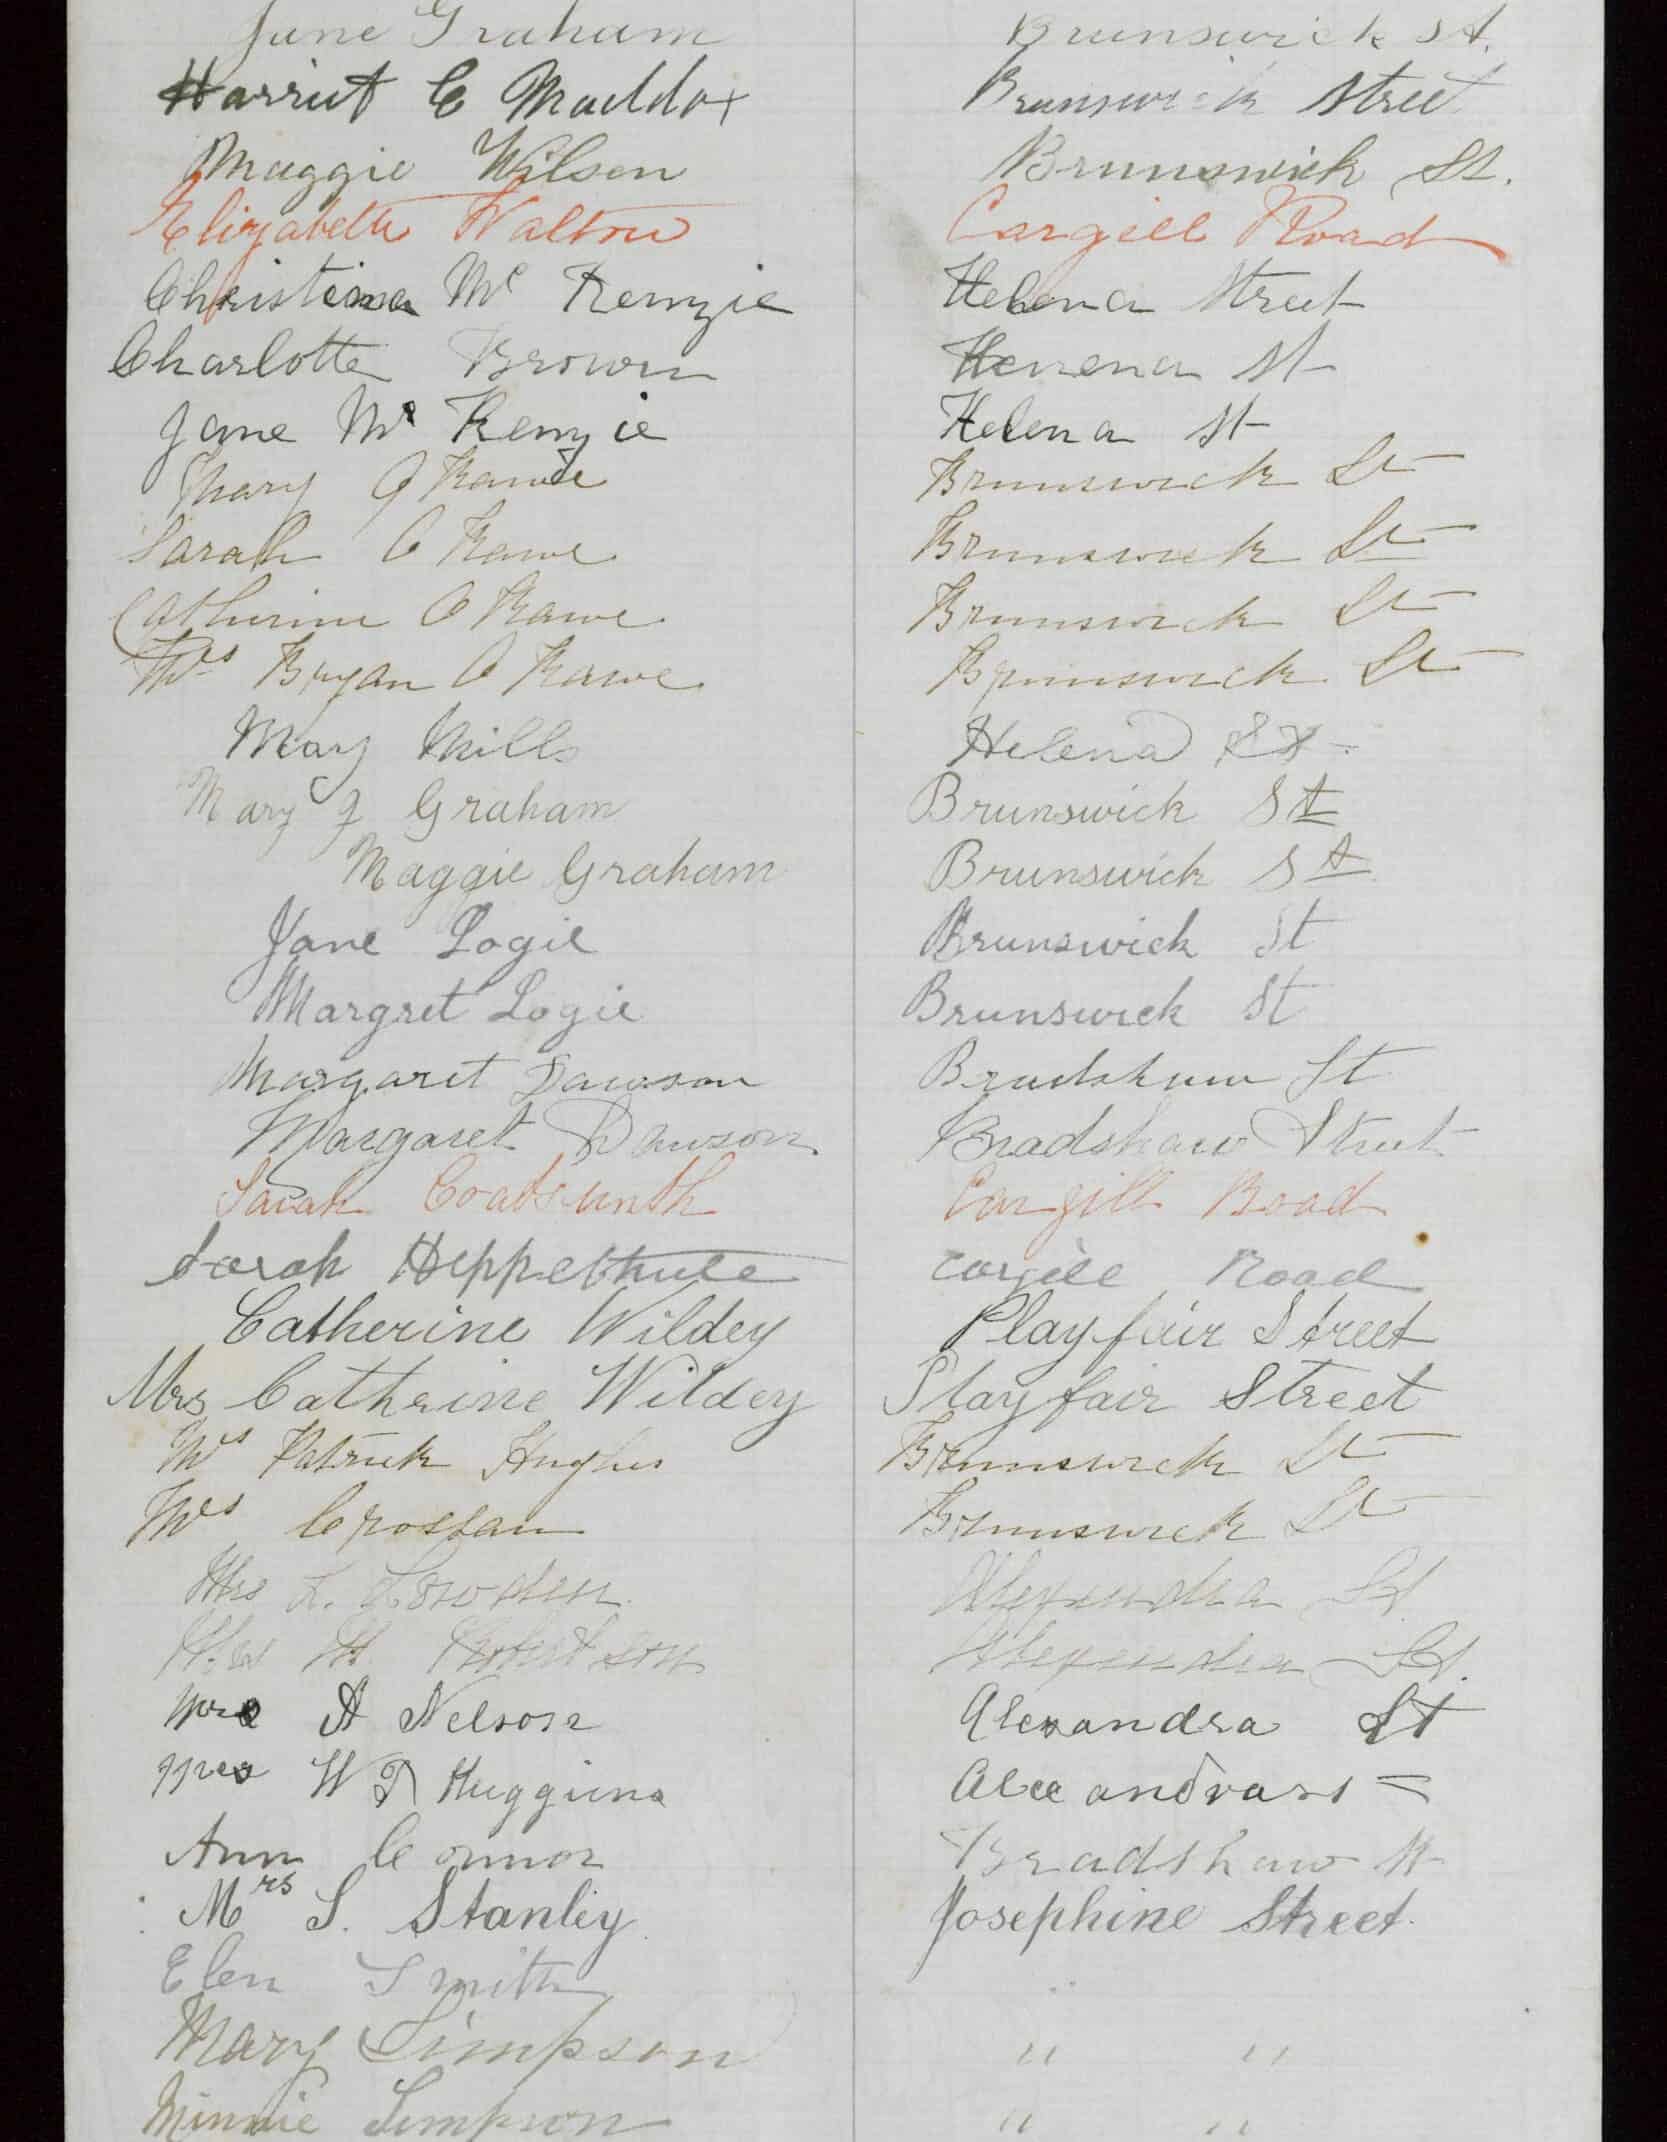 Jane Graham Brunswick St.
Harriet C Maddox Brunswick Street
Maggie Wilson Brunswick St.
Elizabeth Walton Cargill Road
Christina Mc Kenzie Helena Street
Charlotte Brown Henena St
Jane Mc Kenzie Helena St
Mary O Kane Brunswick St
Sarah O Kane Brunswick St
Catherine O Kane Brunswick St
Mrs Bryan O Kane Brunswick St
Mary Mills Helena St
Mary J Graham Brunswick St
Maggie Graham Brunswick St
Jane Logie Brunswick St
Margret Logie Brunswick St
Margaret Dawson Bradshaw St
Margaret Dawson Bradshaw Street
Sarah Cargill Road
Sarah Cargill Road
Catherine Wildey Playfair Street
Mrs Catherine Wildey Playfair Street
Mrs Patrick Hughes Brunswick St
Mrs Crossan Brunswick St
Mrs L. Lowden Alexandra St
Mrs Robertson Alexandra St.
Mrs A Nelson Alexandra St
Mrs W Huggins
Ann Connor Bradshaw St
Mrs S. Stanley Josephine Street.
Elen Smith
Mary Simpson " "
Minnie Simpson " "